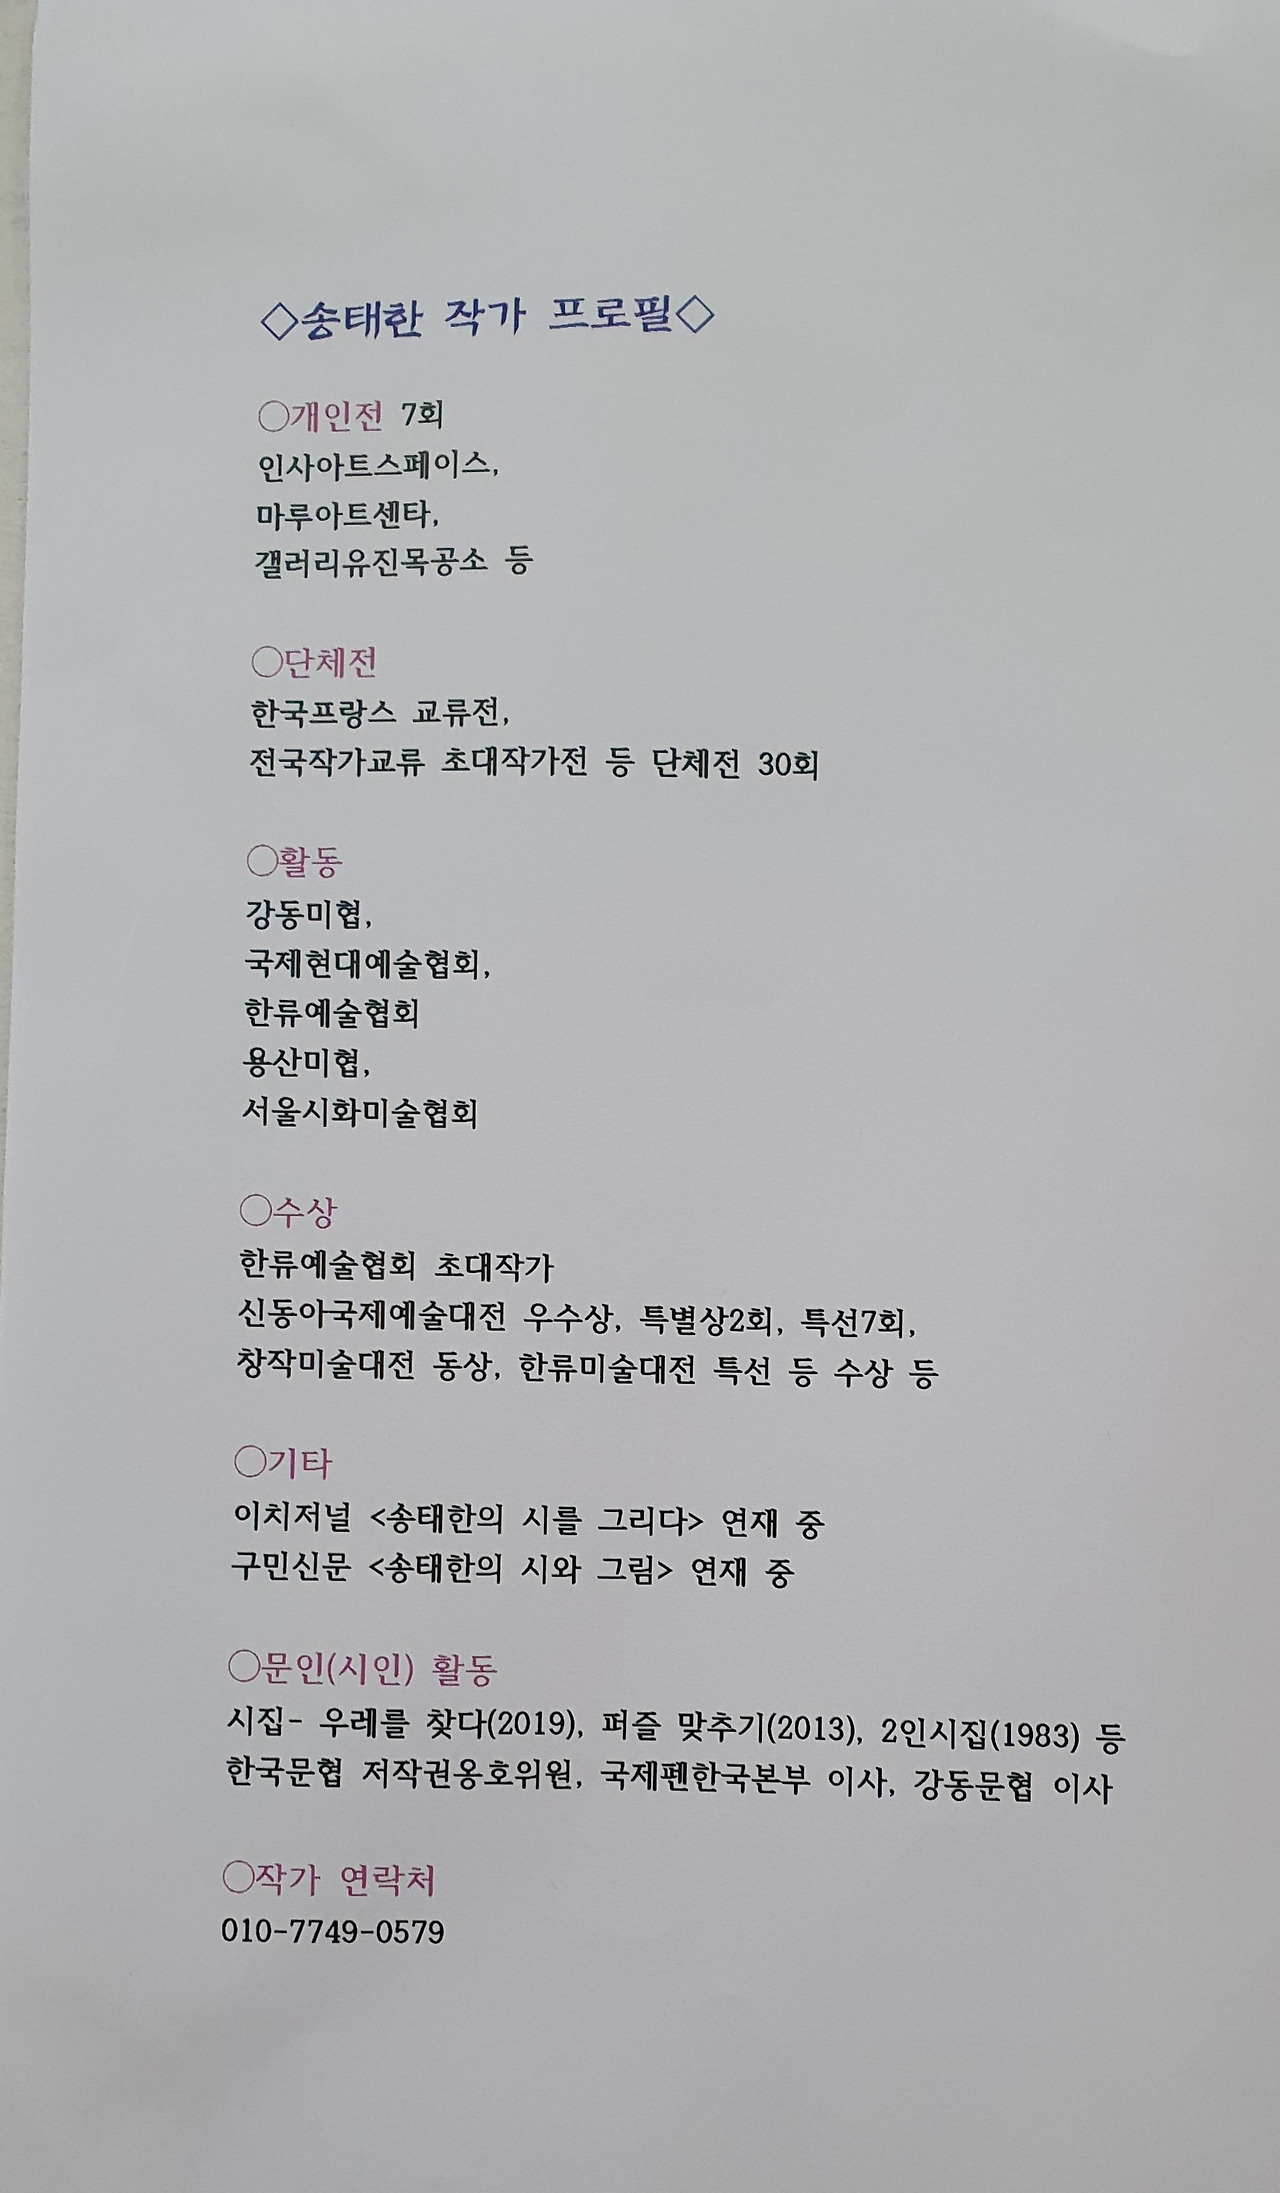 ◇송태한 작가 프로필◇
○개인전 7회
인사아트스페이스,
마루아트센타,
갤러리유진목공소 등
○단체전
한국프랑스 교류전,
전국작가교류 초대작가전 등 단체전 30회
○활동
강동미협,
국제현대예술협회,
한류예술협회
용산미협,
서울시화미술협회
○수상
한류예술협회 초대작가
신동아국제예술대전 우수상, 특별상2회, 특선7회,
창작미술대전 동상, 한류미술대전 특선 등 수상 등
○기타
이치저널 <송태한의 시를 그리다> 연재 중
구민신문 <송태한의 시와 그림> 연재 중
○문인(시인) 활동
시집- 우레를 찾다(2019), 퍼즐 맞추기(2013), 2인시집(1983) 등
한국문협 저작권옹호위원, 국제펜한국본부 이사, 강동문협 이사
○작가 연락처
010-7749-0579